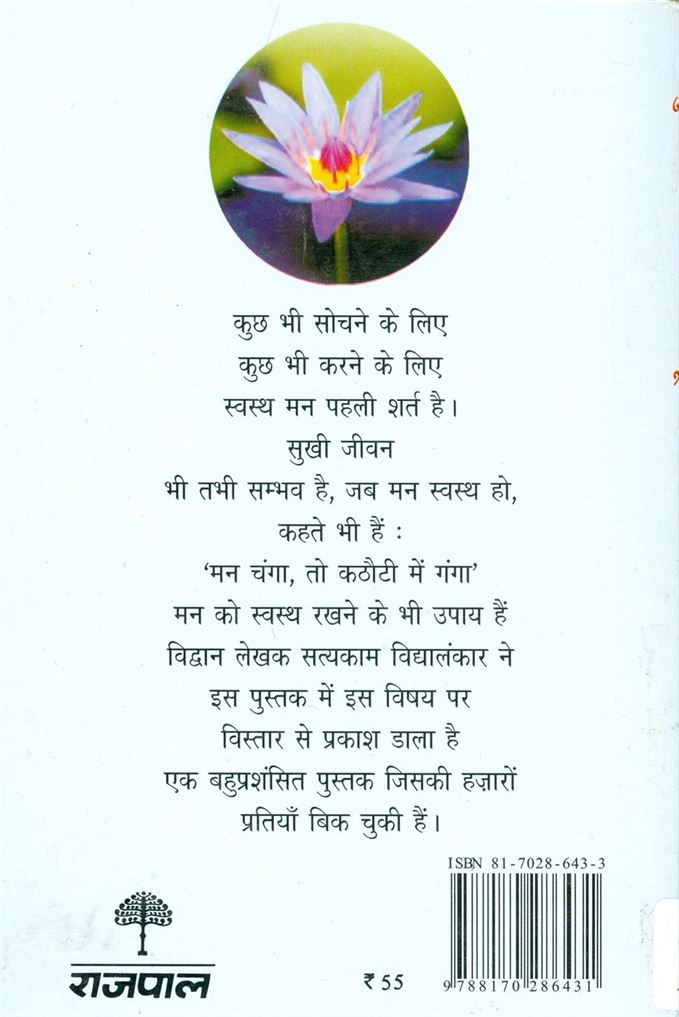 कुछ भी सोचने के लिए
कुछ भी करने के लिए
स्वस्थ मन पहली शर्त है।
सुखी जीवन
भी तभी सम्भव है, जब मन स्वस्थ हो,
कहते भी हैं :
‘मन चंगा, तो कठौटी में गंगा’
मन को स्वस्थ रखने के भी उपाय हैं
विद्वान लेखक सत्यकाम विद्यालंकार ने
इस पुस्तक में इस विषय पर
विस्तार से प्रकाश डाला है
एक बहुप्रशंसित पुस्तक जिसकी हज़ारों
प्रतियाँ बिक चुकी हैं।
ISBN 81-7028-643-3
राजपाल
₹ 55
9 788170 286431